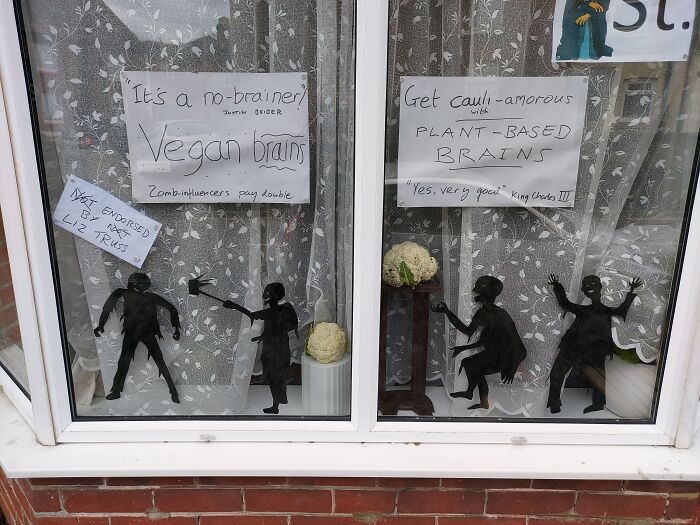 "It's a no-brainer!"
JUSTIN BEIBER
Vegan brains
Zombinfluencers pay double
NOT ENDORSED
BY
LIZ TRUSS
St.
Get cauli-amorous
with
PLANT-BASED
BRAINS
"Yes, very good" King Charles III